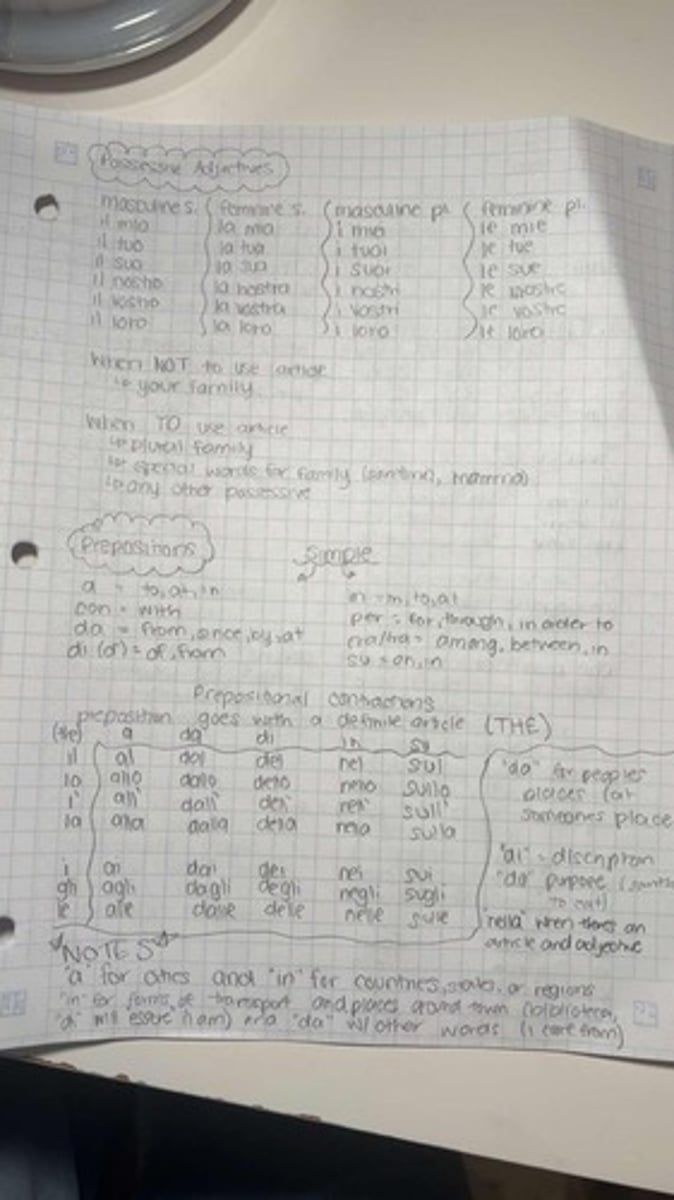 Possessive Adjectives
masculine s. feminine s. masculine pl feminine pl.
il mio la mia i miei le mie
il tuo la tua i tuoi le tue
il suo la sua i suoi le sue
il nostro la nostra i nostri le nostre
il vostro la vostra i vostri le vostre
il loro la loro i loro le loro
When NOT to use article
↳ your family
When TO use article
↳ plural family
↳ special words for family mamma)
↳ any other possessive
Prepositions simple
a = to, at, in
con = with
da = from, since, by, at
di (d') = of, from
in = in, to, at
per = for, through, in order to
fra/tra = among, between, in
su = on, in
Prepositional contractions
preposition goes with a definite article (THE)
(the) a da di in su
il al dal del nel sul
lo allo dallo dello nello sullo
l' all' dall' dell' nell' sull'
la alla dalla della nella sulla
i ai dai dei nei sui
gli agli dagli degli negli sugli
le alle dalle delle nelle sulle
"da" for peoples
places (at
someones place
"al" = description
"da" purpose
to eat)
"nella" when theres an
article and adjective
NOTES
"a" for cities and "in" for countries, states, or regions
"in" for forms of transport and places around town (biblioteca,
"di" w/ essere (I am) and "da" w/ other words (I come from)